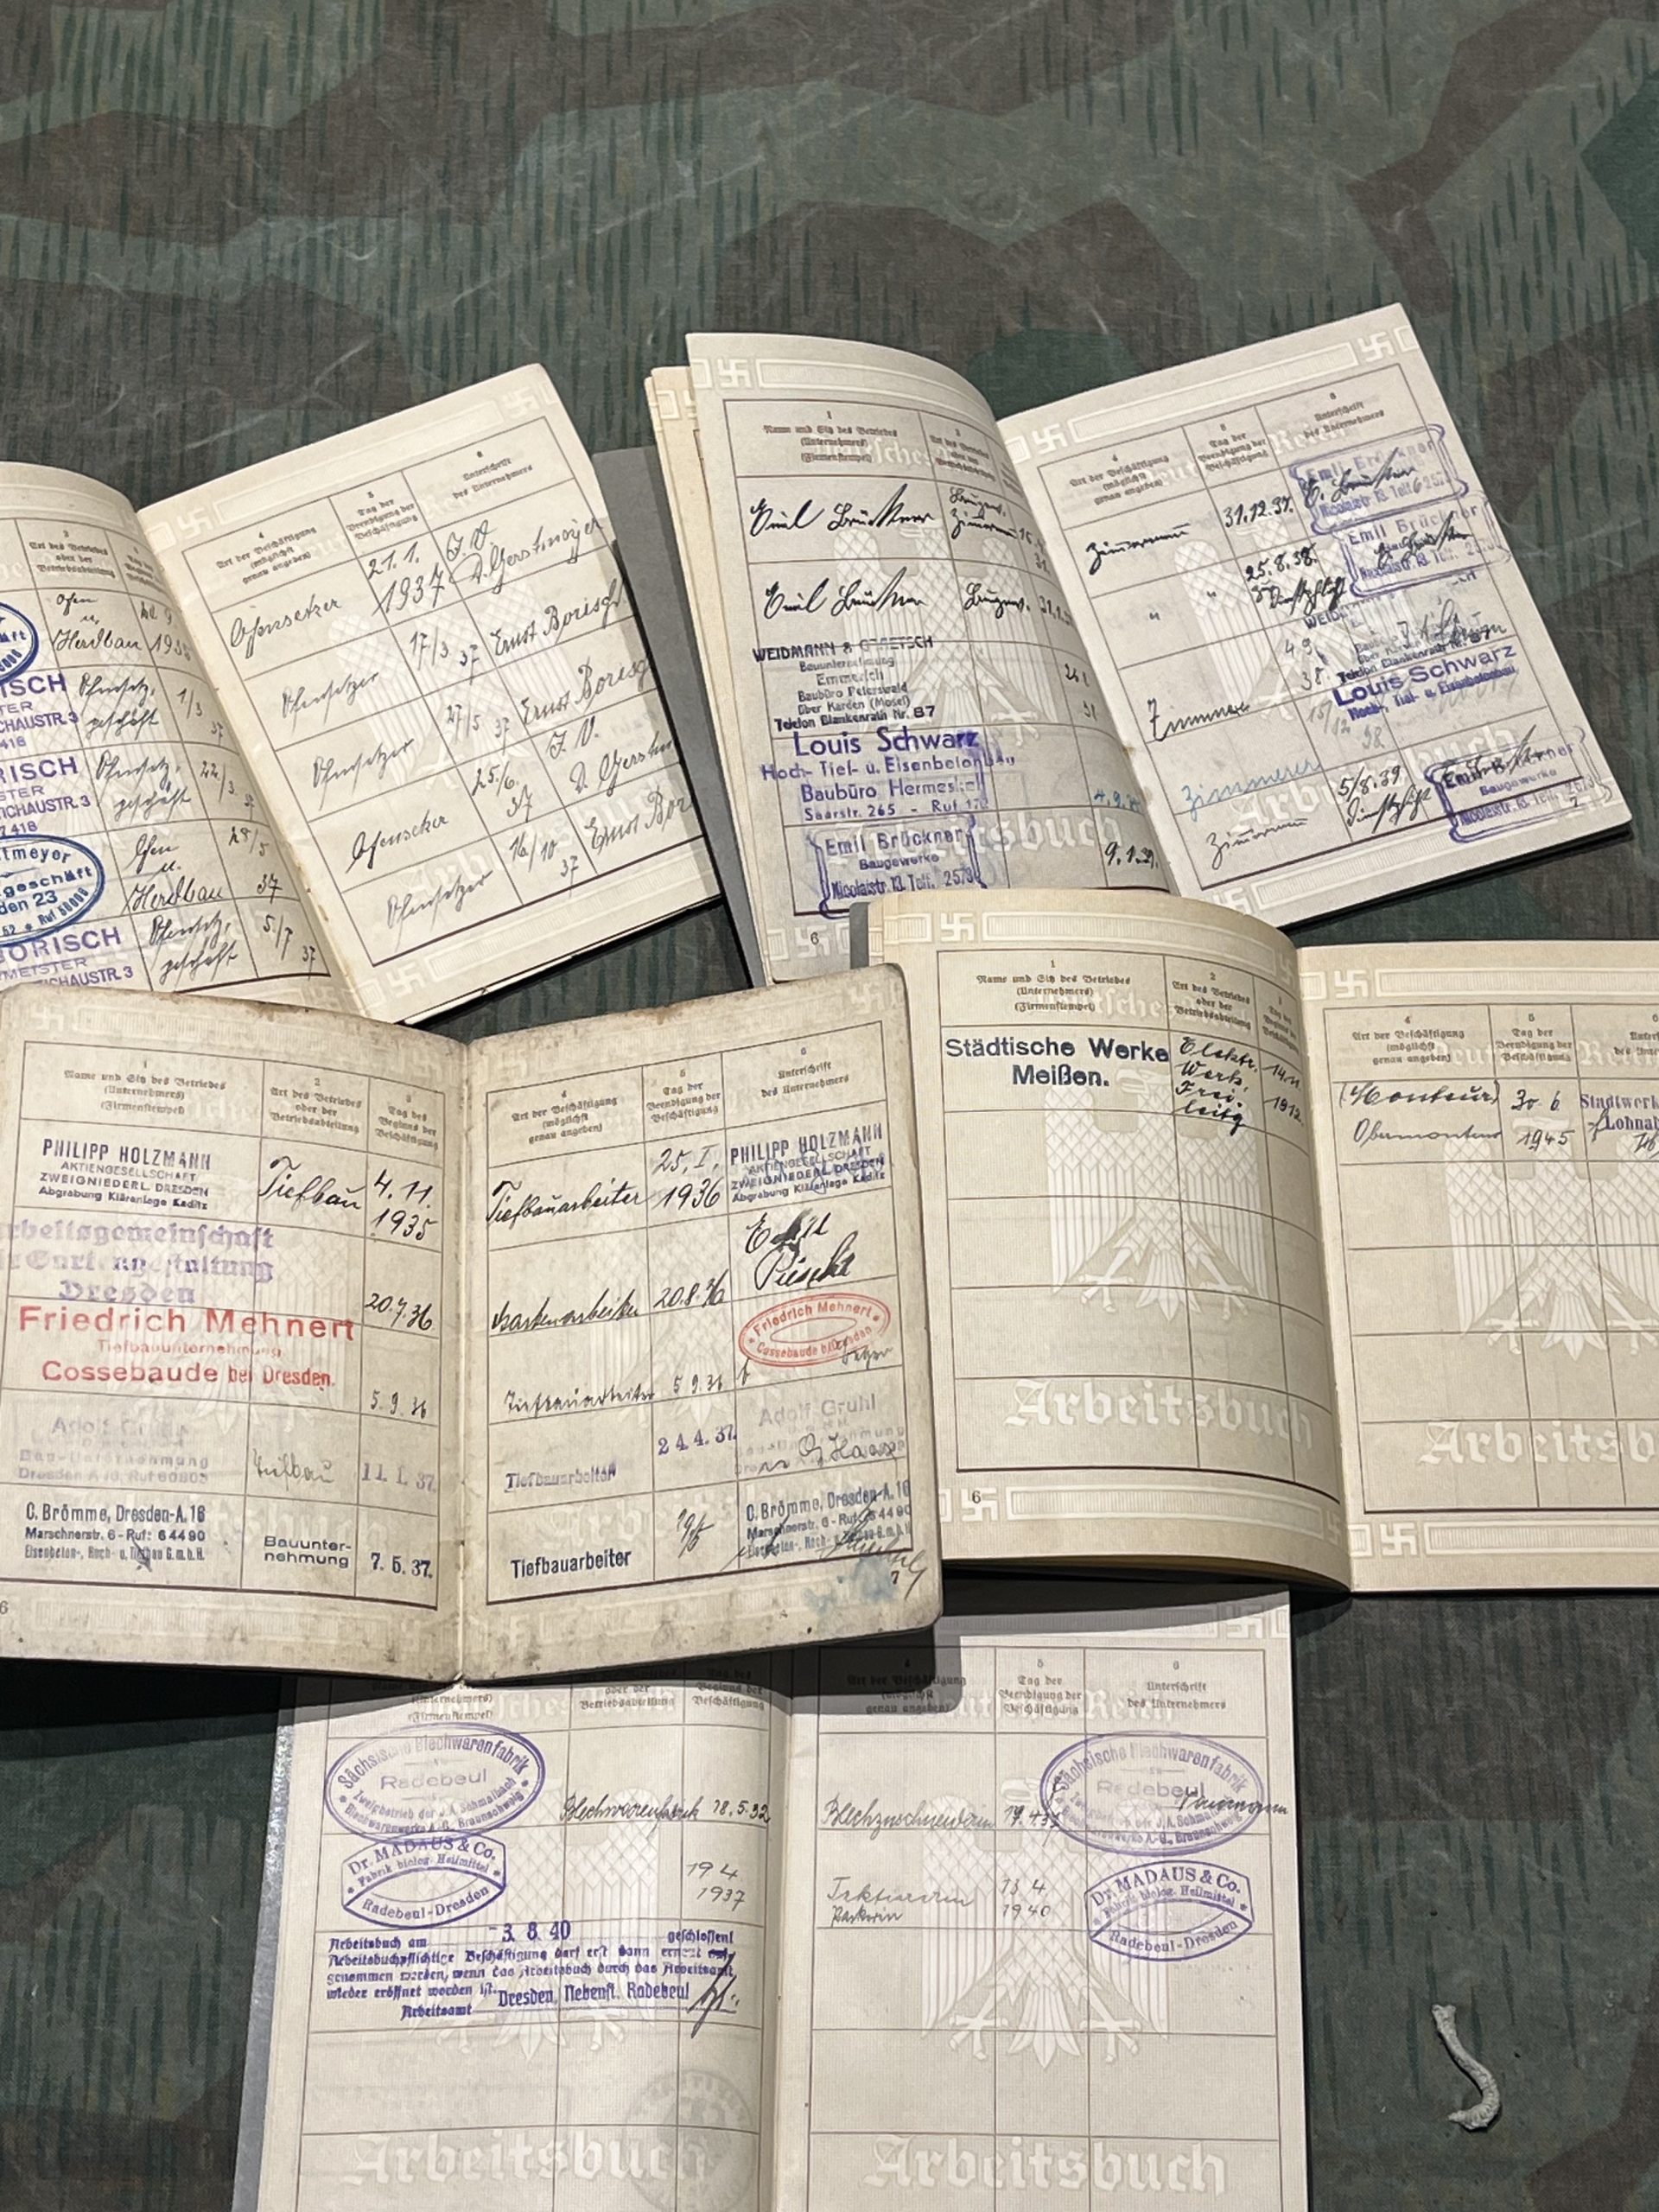 Art des Betriebes
oder der
Betriebsabteilung
Ofen
u.
Herdbau
Ofensetz.
geschäft
1/3
37
Ofensetz.
geschäft
22/3
37
Ofen
u.
Herdbau
28/5
37
Ofensetz.
geschäft
5/7
37
CHAUSTR. 3
418
ORISCH
TICHAUSTR. 3
7418
tmeyer
geschäft
den 23
ORISCH
MEISTER
TICHAUSTR. 3
4
Art der Beschäftigung
(möglichst
genau angeben)
5
Tag der
Beendigung der
Beschäftigung
6
Unterschrift
des Unternehmers
Ofensetzer
21.1.
1937
J. V.
Ofensetzer
17/3
37
Ernst Borisch
Ofensetzer
27/5 37
Ernst Borisch
Ofensetzer
25/6
37
J. V.
Ofensetzer
16/10
37
Ernst Bor
1
Name und Sitz des Betriebes
(Unternehmers)
(Firmenstempel)
Emil Brückner
Baugew.
Emil Brückner
Baugew.
WEIDMANN &
Bauunternehmung
Emmerich
Baubüro Peterswald
über Karden (Mosel)
Telefon Blankenrath Nr. 87
Louis Schwarz
Hoch- Tief- u. Eisenbetonbau
Baubüro Hermeskeil
Saarstr. 265 - Ruf 172
4.9.
Emil Brückner
Baugewerke
Nicolaistr. 13. Telf. 2573
9.1.39.
6
4
Art der Beschäftigung
(möglichst
genau angeben)
5
Tag der
Beendigung der
Beschäftigung
6
Unterschrift
des Unternehmers
Zimmermann
31.12.37.
Emil Brückner
Nicolaistr. 13. Telf. 2573
"
25.8.38.
Dienstpflicht
Emil Brückner
Nicolaistr. 13. Telf. 2573
Zimmerer
4.9.
38
Telefon Blankenrath Nr.
Louis Schwarz
Hoch-, Tief- u. Eisenbetonbau
Zimmerer
15/
12
38
Zimmermann
5/8.39
Dienstpflicht
Emil Brückner
Baugewerke
Nicolaistr. 13. Telf. 2573
7
1
Name und Sitz des Betriebes
(Unternehmers)
(Firmenstempel)
2
Art des Betriebes
oder der
Betriebsabteilung
3
Tag des
Beginns der
Beschäftigung
PHILIPP HOLZMANN
AKTIENGESELLSCHAFT
ZWEIGNIEDERL. DRESDEN
Abgrabung Kläranlage Kaditz
Tiefbau
4.11.
1935
Arbeitsgemeinschaft
Gartengestaltung
Dresden
20.7.36
Friedrich Mehnert
Tiefbauunternehmung
Cossebaude bei Dresden.
5.9.36
Adolf Gruhl
Bau-Unternehmung
Dresden A 10, Ruf 60803
Tiefbau
11.1.37.
C. Brömme, Dresden-A. 16
Marschnerstr. 6 - Ruf: 64490
Eisenbeton-, Hoch- u. Tiefbau G.m.b.H.
Bauunter-
nehmung
7.5.37.
6
4
Art der Beschäftigung
(möglichst
genau angeben)
5
Tag der
Beendigung der
Beschäftigung
6
Unterschrift
des Unternehmers
Tiefbauarbeiter
25. I.
1936
PHILIPP HOLZMANN
AKTIENGESELLSCHAFT
ZWEIGNIEDERL. DRESDEN
Abgrabung Kläranlage Kaditz
Gartenarbeiter
20.8.36
Tiefbauarbeiter
5 9.36
Friedrich Mehnert
Cossebaude b/Dresden
Tiefbauarbeiter
24.4.37.
Adolf Gruhl
Bau-Unternehmung
Tiefbauarbeiter
C. Brömme, Dresden-A. 16
Marschnerstr. 6 - Ruf: 64490
Eisenbeton-, Hoch- u. Tiefbau G.m.b.H.
7
1
Name und Sitz des Betriebes
(Unternehmers)
(Firmenstempel)
2
Art des Betriebes
oder der
Betriebsabteilung
Städtische Werke
Meißen.
Elektr.
Werk,
Frei-
leitg
14.11.
1912
Arbeitsbuch
6
4
Art der Beschäftigung
(möglichst
genau angeben)
5
Tag der
Beendigung der
Beschäftigung
(Monteur)
Obermonteur
30. 6.
1945
Stadtwerk
Lohnab
Arbeitsb
(Unternehmers)
(Firmenstempel)
oder der
Betriebsabteilung
Beginns der
Beschäftigung
Sächsische Blechwarenfabrik
Radebeul
Zweigbetrieb der J.A. Schmalbach
Blechwarenwerke A.-G., Braunschweig
Blechwarenfabrik
18.5.32
Dr. MADAUS & Co.
Fabrik biolog. Heilmittel
Radebeul-Dresden
19 4
1937
Arbeitsbuch am -3. 8. 40 geschlossen!
Arbeitsbuchpflichtige Beschäftigung darf erst dann erneut auf-
genommen werden, wenn das Arbeitsbuch durch das Arbeitsamt
wieder eröffnet worden ist.
Arbeitsamt Dresden, Nebenst. Radebeul
Arbeitsbuch
4
Art der Beschäftigung
(möglichst
genau angeben)
5
Tag der
Beendigung der
Beschäftigung
6
Unterschrift
des Unternehmers
Blechzuschneiderin
Sächsische Blechwarenfabrik
Radebeul
Zweigbetrieb der J.A. Schmalbach
Blechwarenwerke A.-G., Braunschweig
Packerin
13 4.
1940
Dr. MADAUS & Co.
Fabrik biolog. Heilmittel
Radebeul-Dresden
Arbeitsbuch